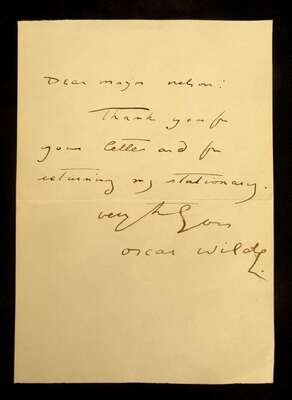 Dear major nelson:
Thank you for
your letter and for
returning my stationary.
very
oscar wilde.